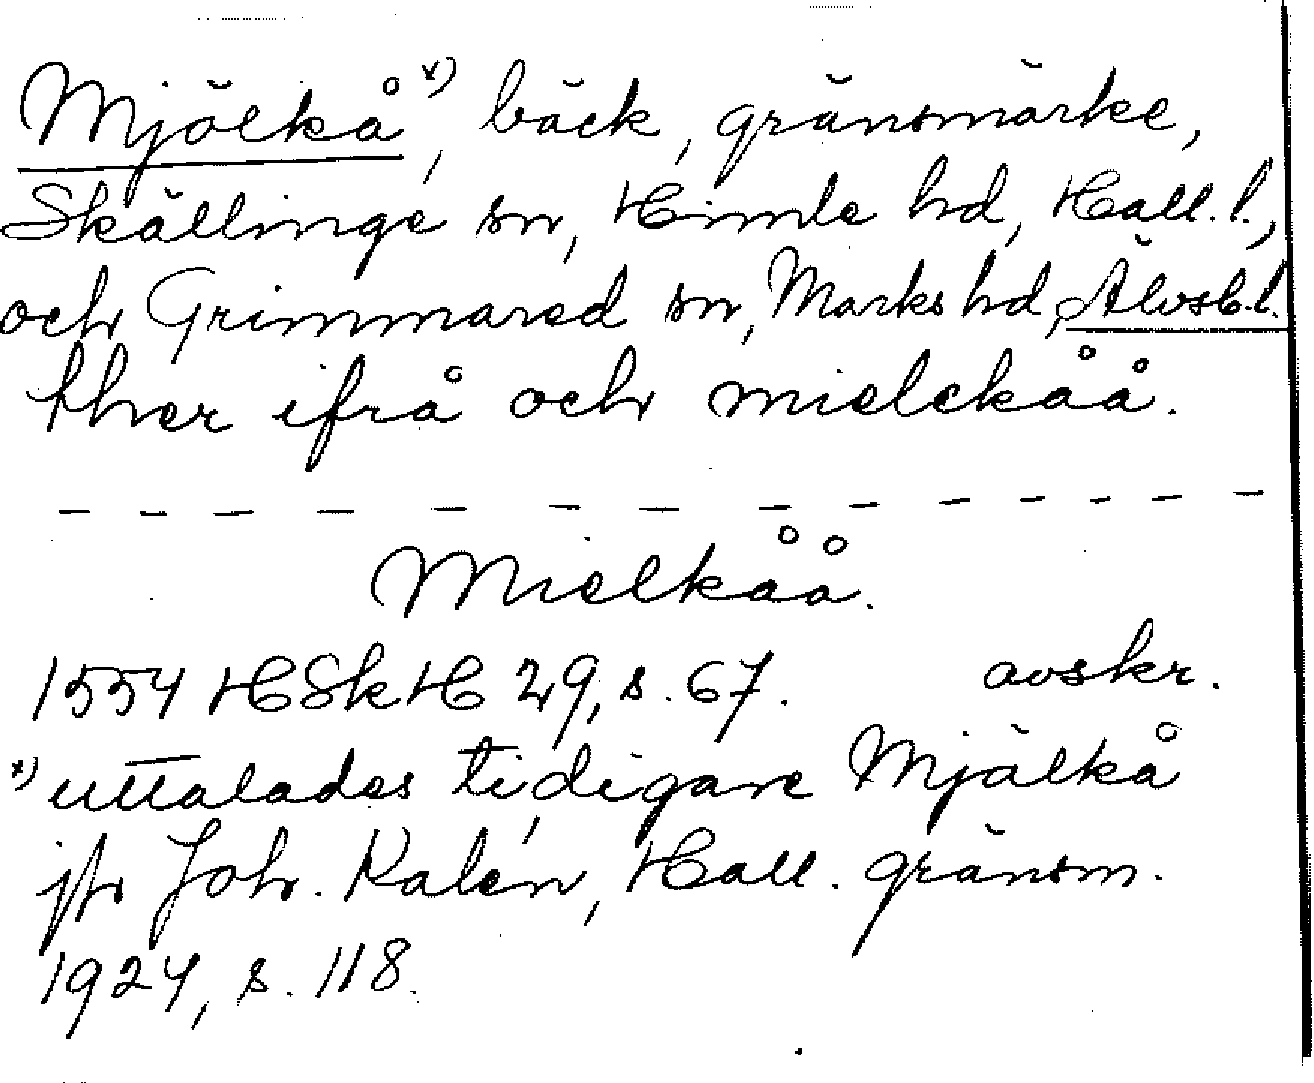 Mjölkå x), bäck, gränsmärke,
Skällinge sn, Himle hd, Hall. l.,
och Grimmared sn, Marks hd, Älvsb. l.
ther ifrå och mielckåå.
– – – – – – – – – – – – – –
Mielkåå.
1554 HSkH 29, s. 67. avskr.
x) uttalades tidigare Mjälkå
jfr Joh. Kalén, Hall. gränsm.
1924, s. 118.